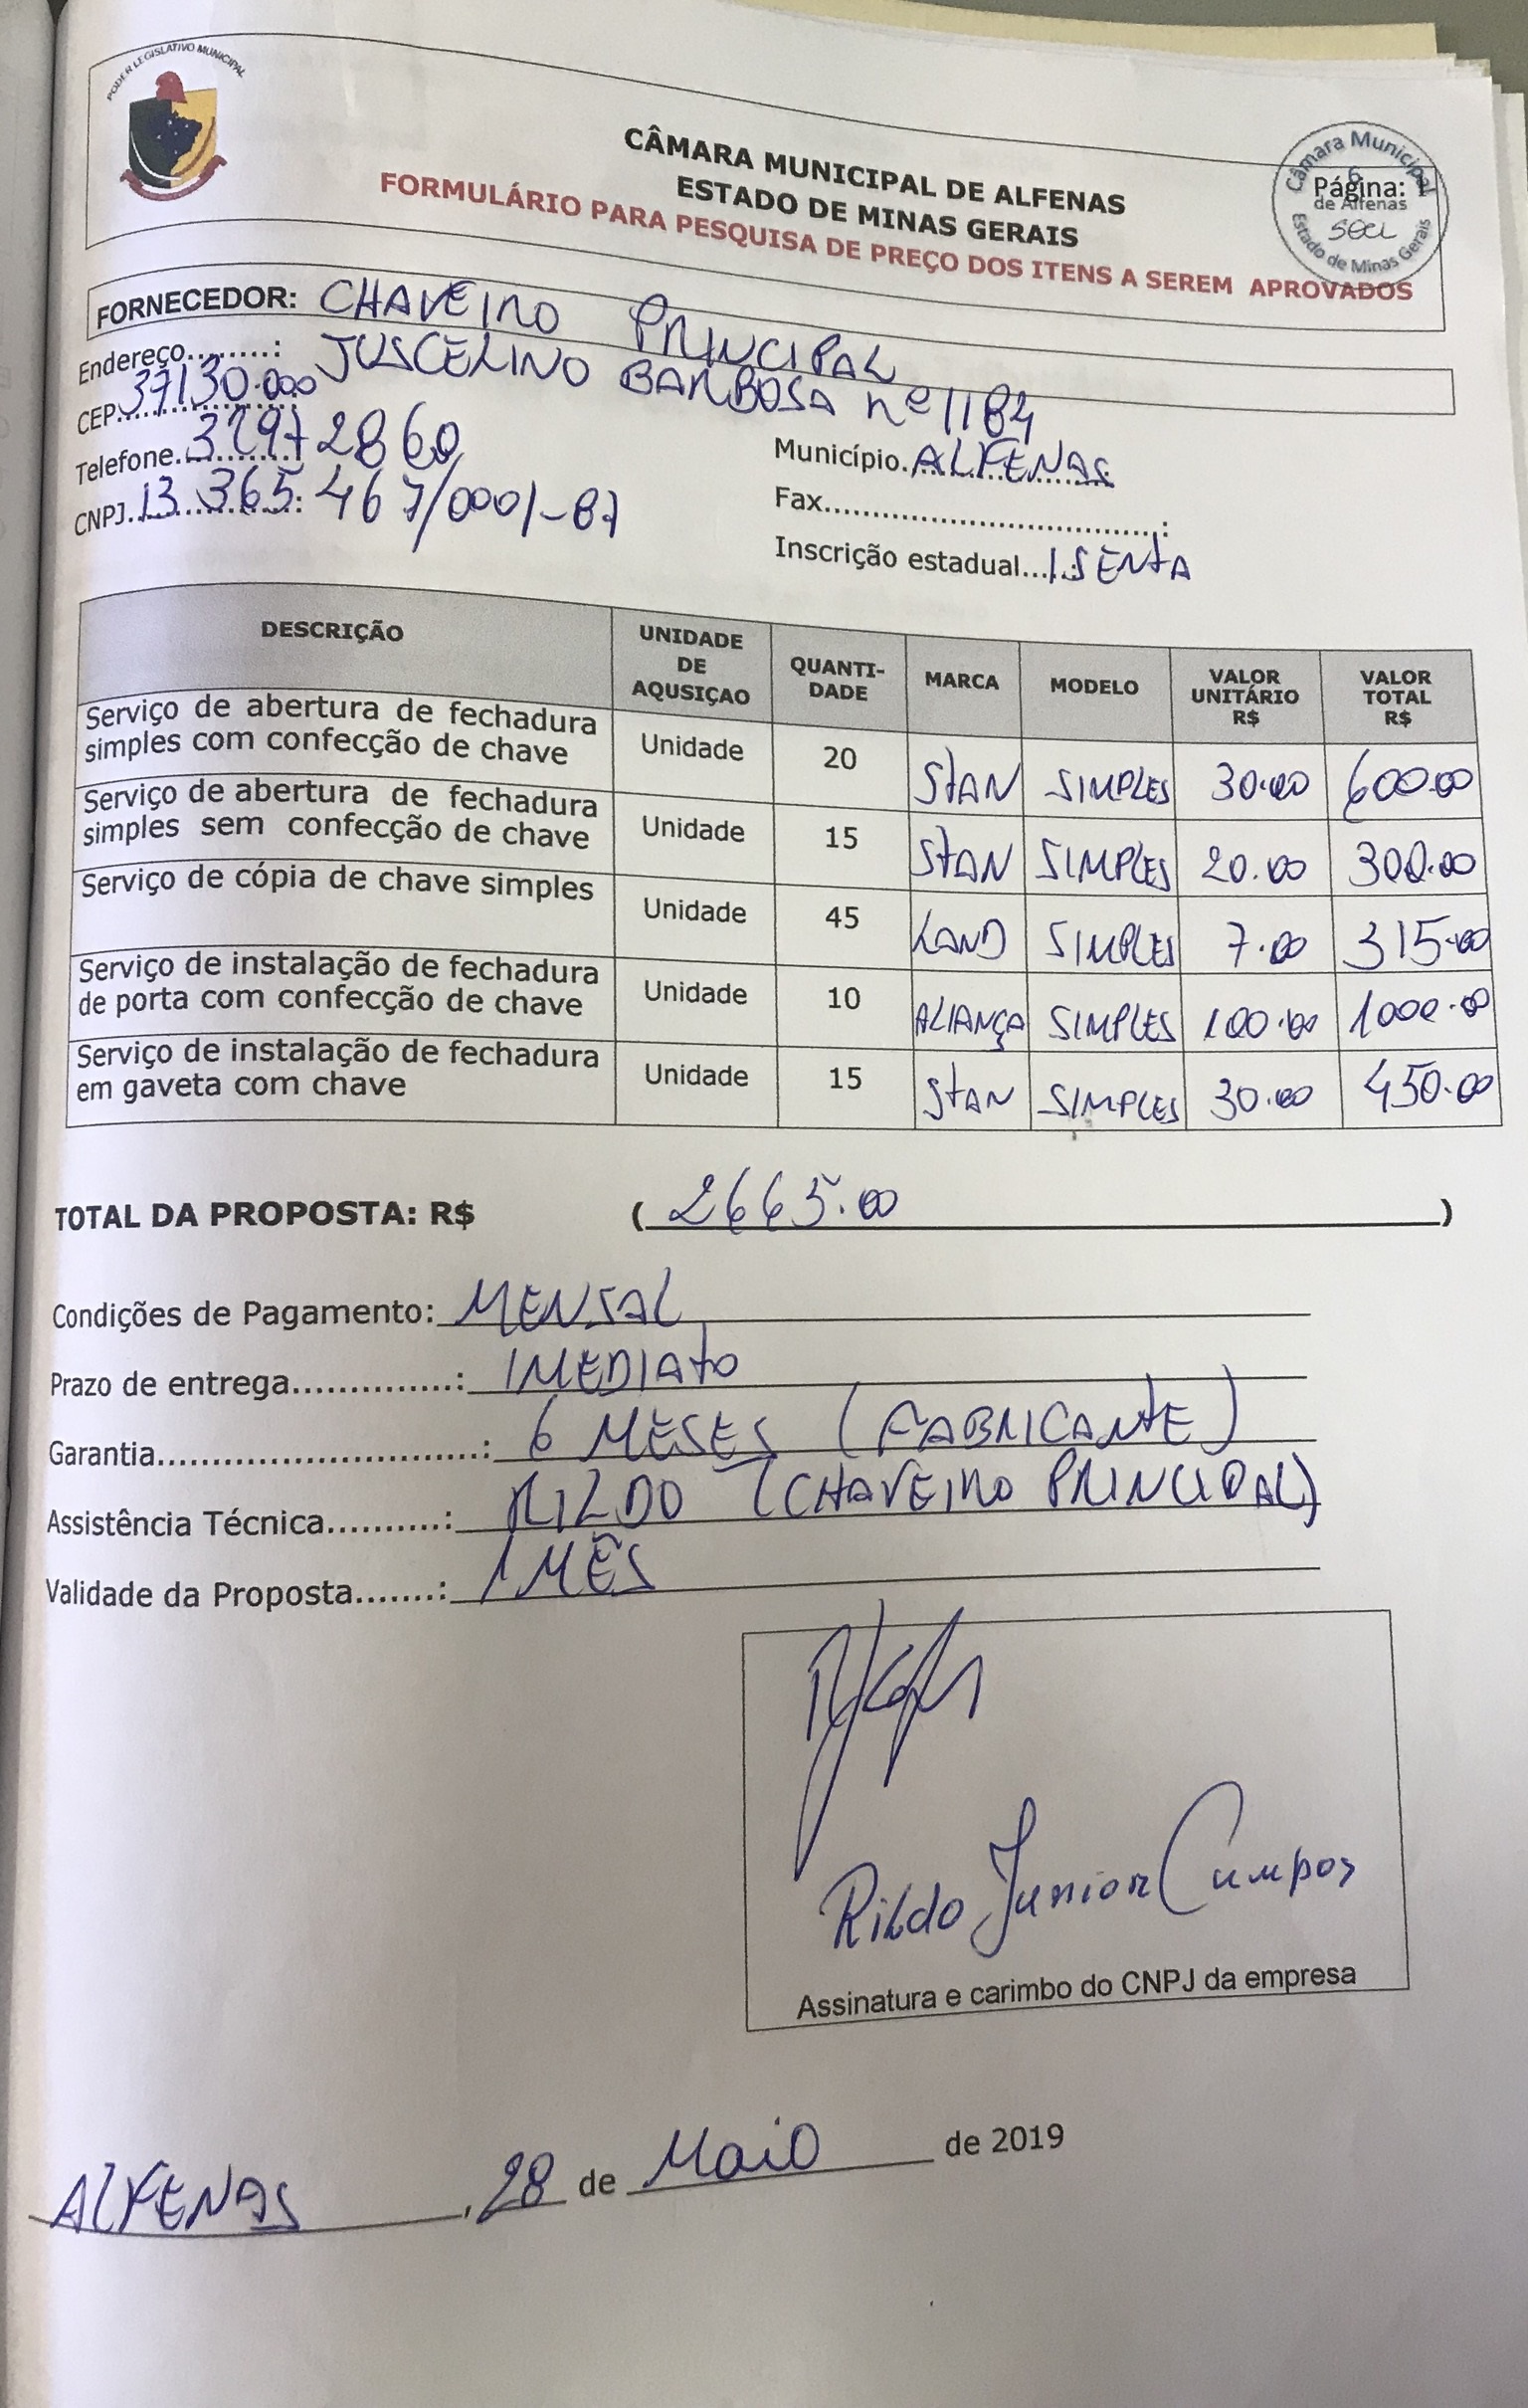 PODER LEGISLATIVO MUNICIPAL
CÂMARA MUNICIPAL DE ALFENAS
ESTADO DE MINAS GERAIS
FORMULÁRIO PARA PESQUISA DE PREÇO DOS ITENS A SEREM APROVADOS
Câmara Municipal
6
Página:
de Alfenas
Estado de Minas Gerais
FORNECEDOR: CHAVEIRO PRINCIPAL
Endereço.........: JUSCELINO BARBOSA nº 1184
CEP 37130.000
Telefone 32972860
CNPJ 13.365.467/0001-87
Município ALFENAS
Fax...................................:
Inscrição estadual...: ISENTA
DESCRIÇÃO UNIDADE DE AQUSIÇAO QUANTI-DADE MARCA MODELO VALOR UNITÁRIO R$ VALOR TOTAL R$
Serviço de abertura de fechadura simples com confecção de chave Unidade 20 STAN SIMPLES 30.00 600.00
Serviço de abertura de fechadura simples sem confecção de chave Unidade 15 STAN SIMPLES 20.00 300.00
Serviço de cópia de chave simples Unidade 45 LAND SIMPLES 7.00 315.00
Serviço de instalação de fechadura de porta com confecção de chave Unidade 10 ALIANÇA SIMPLES 100.00 1000.00
Serviço de instalação de fechadura em gaveta com chave Unidade 15 STAN SIMPLES 30.00 450.00
TOTAL DA PROPOSTA: R$ (2665.00)
Condições de Pagamento: MENSAL
Prazo de entrega..............: IMEDIATO
Garantia............................: 6 MESES (FABRICANTE)
Assistência Técnica..........: RILDO (CHAVEIRO PRINCIPAL)
Validade da Proposta.......: 1 MÊS
Rildo Junior Campos
Assinatura e carimbo do CNPJ da empresa
ALFENAS, 28 de Maio de 2019